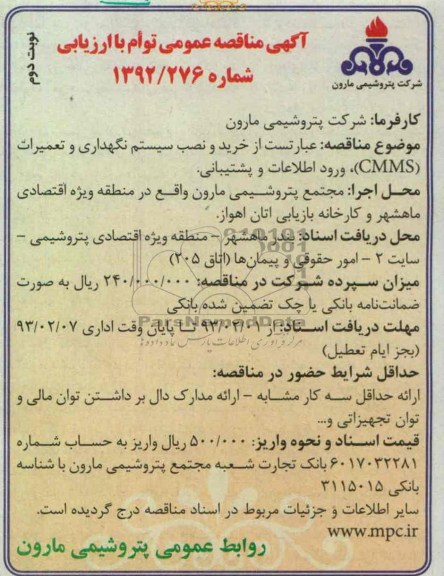 نوبت دوم
آگهی مناقصه عمومی توأم با ارزیابی
شماره ۱۳۹۲/۲۷۶
شرکت پتروشیمی مارون
کارفرما: شرکت پتروشیمی مارون
موضوع مناقصه: عبارتست از خرید و نصب سیستم نگهداری و تعمیرات
(CMMS)، ورود اطلاعات و پشتیبانی.
محل اجرا: مجتمع پتروشیمی مارون واقع در منطقه ویژه اقتصادی
ماهشهر و کارخانه بازیابی اتان اهواز.
محل دریافت اسناد: بندر ماهشهر – منطقه ویژه اقتصادی پتروشیمی –
سایت ۲ – امور حقوقی و پیمان‌ها (اتاق ۲۰۵)
میزان سپرده شرکت در مناقصه: ۲۴۰/۰۰۰/۰۰۰ ریال به صورت
ضمانت‌نامه بانکی یا چک تضمین شده بانکی
ParsNamadData
مهلت دریافت اسناد: از ۹۳/۰۲/۰۱ تا پایان وقت اداری ۹۳/۰۲/۰۷
(بجز ایام تعطیل)
حداقل شرایط حضور در مناقصه:
ارائه حداقل سه کار مشابه – ارائه مدارک دال بر داشتن توان مالی و
توان تجهیزاتی و...
قیمت اسناد و نحوه واریز: ۵۰۰/۰۰۰ ریال واریز به حساب شماره
۶۰۱۷۰۳۲۲۸۱ بانک تجارت شعبه مجتمع پتروشیمی مارون با شناسه
بانکی ۳۱۱۵۰۱۵
سایر اطلاعات و جزئیات مربوط در اسناد مناقصه درج گردیده است.
www.mpc.ir
روابط عمومی پتروشیمی مارون